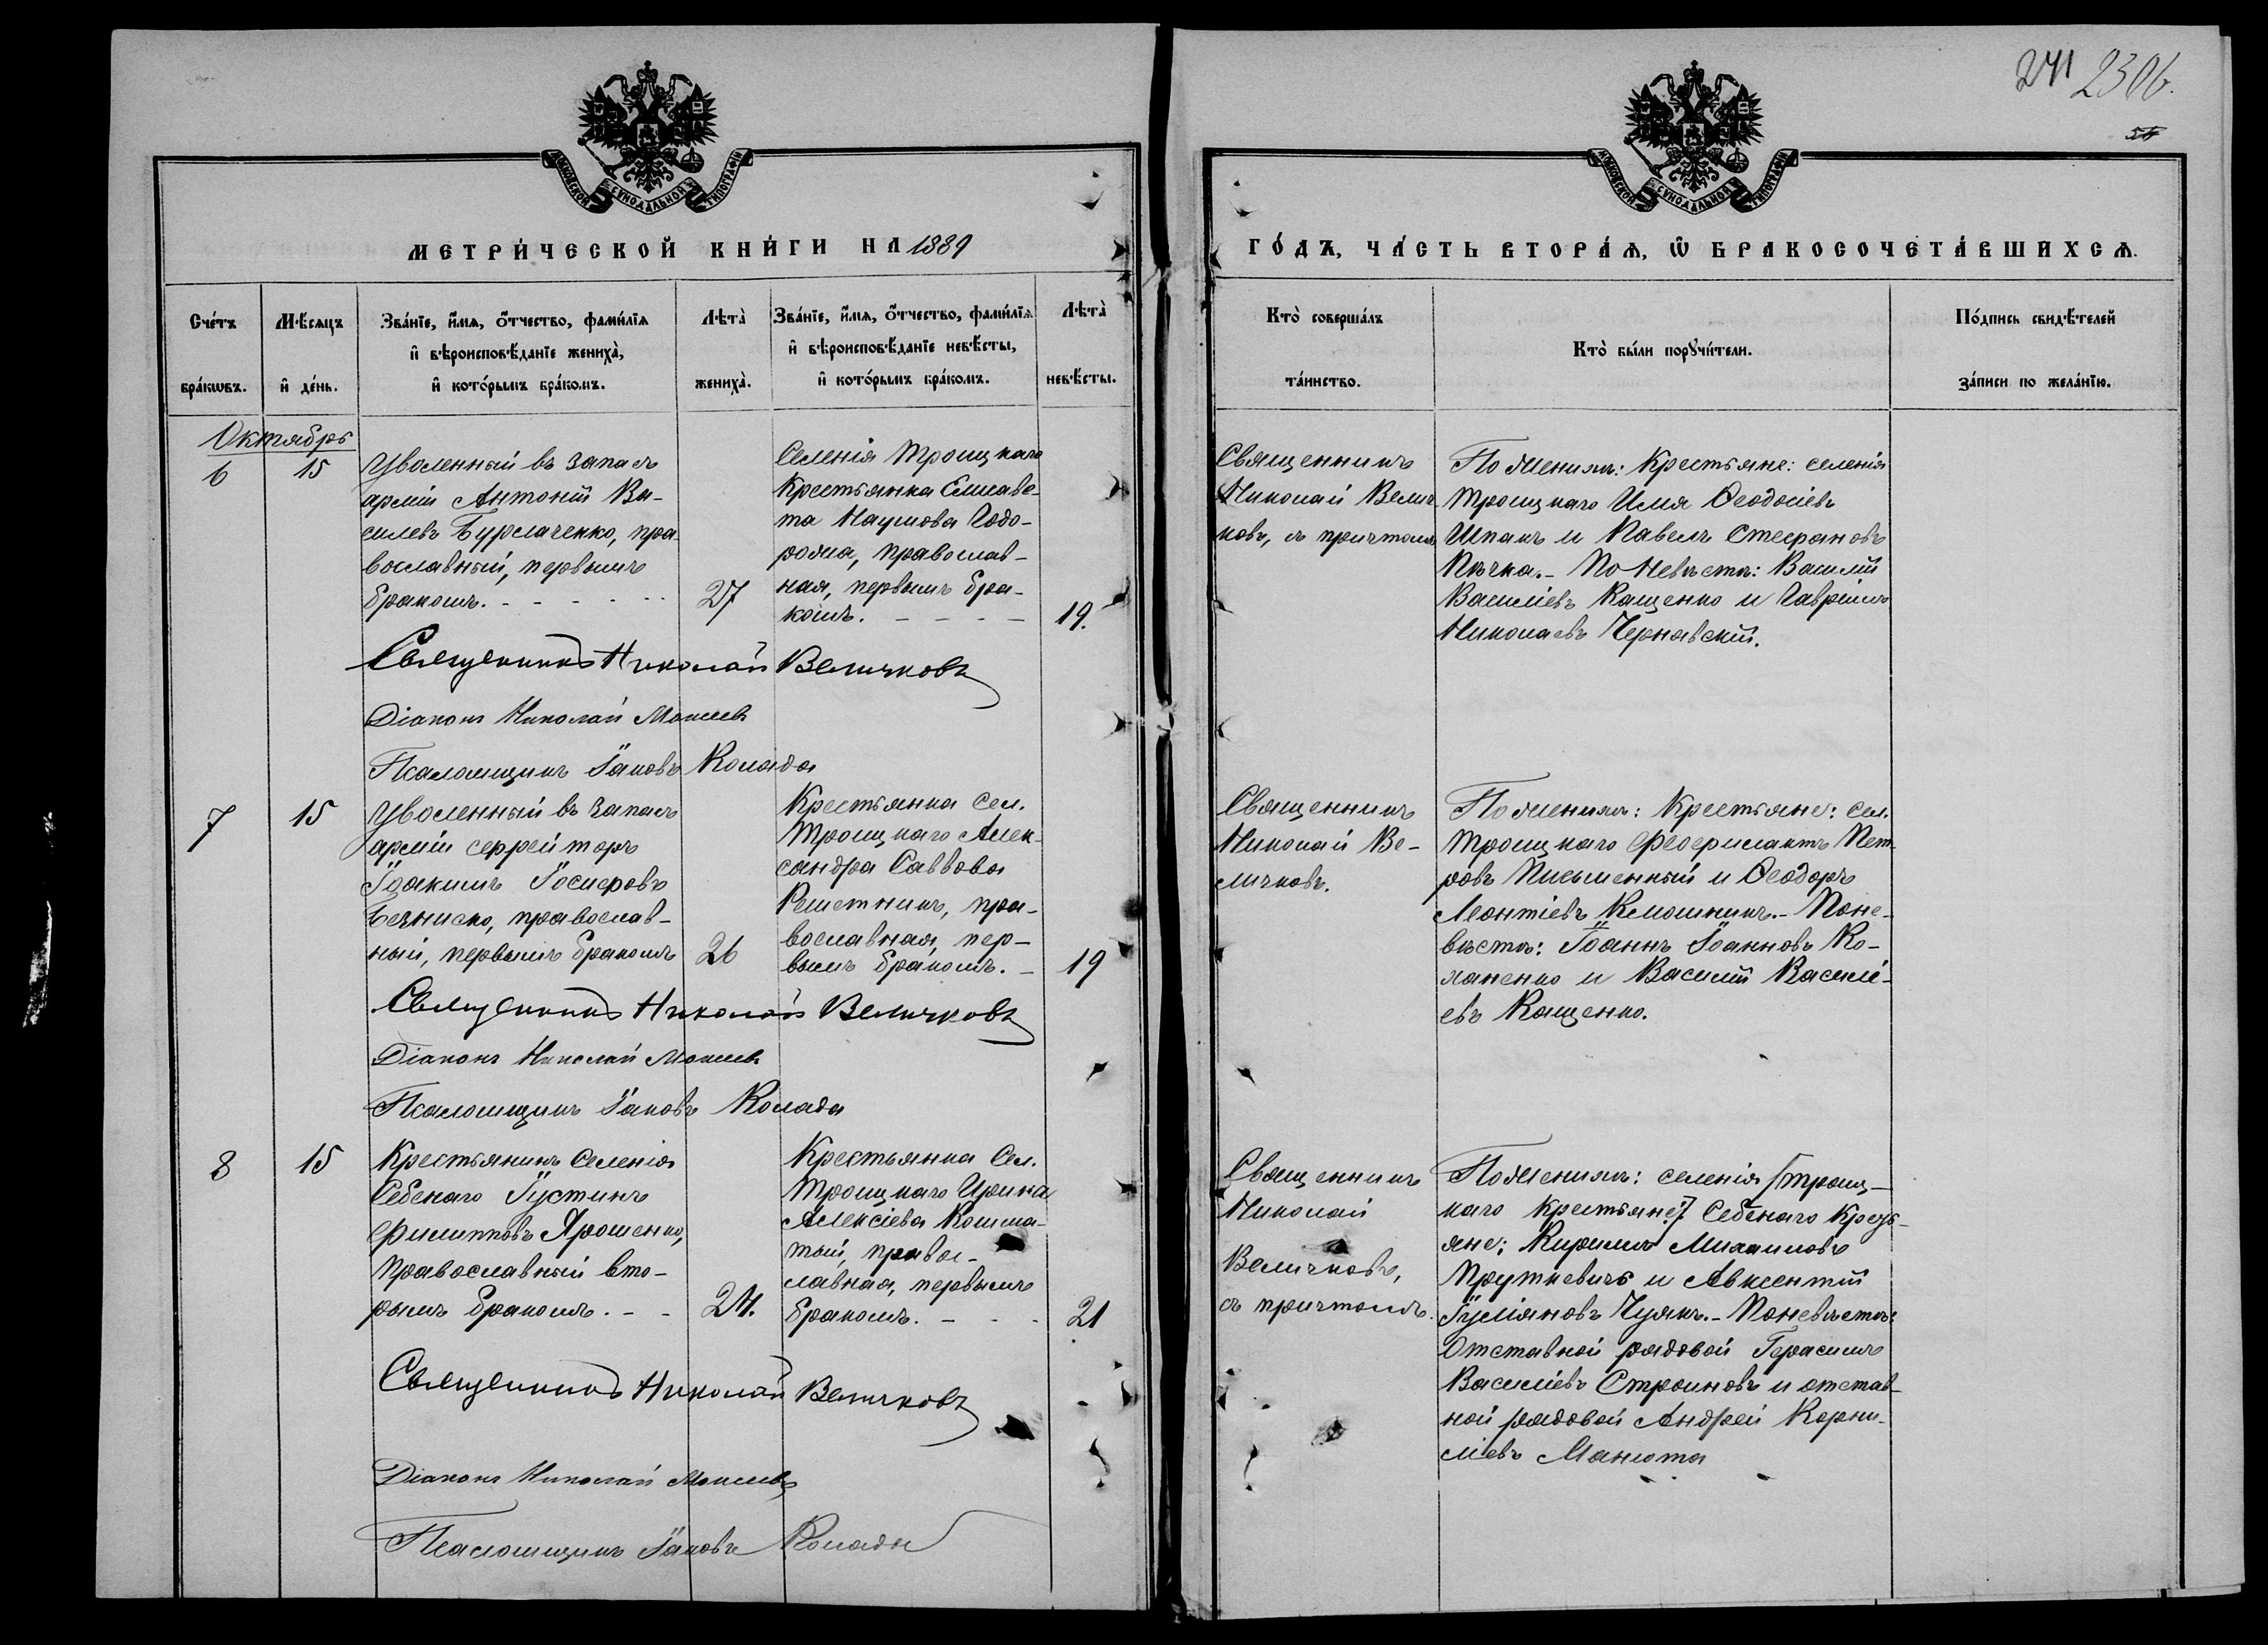 241 2306.
54
МОСКОВСКОЙ СѴНОДАЛЬНОЙ ТИПОГРАФІИ
МОСКОВСКОЙ СѴНОДАЛЬНОЙ ТИПОГРАФІИ
МЕТРИ́ЧЕСКОЙ КНИ́ГИ НА 1889
ГО́ДЪ, ЧА́СТЬ ВТОРА́Ѧ, Ѽ БРАКОСОЧЕТА́ВШИХСѦ.
Сче́тъ
бра́кѡвъ.
Мѣ́сяцъ
и҆ де́нь.
Зва́нїе, и҆́мѧ, о҆́тчество, фами́лїѧ
и҆ вѣроисповѣ́данїе жениха̀,
и҆ кото́рымъ бра́комъ.
Лѣта̀
жениха̀.
Зва́нїе, и҆́мѧ, о҆́тчество, фами́лїѧ
и҆ вѣроисповѣ́данїе невѣ́сты,
и҆ кото́рымъ бра́комъ.
Лѣта̀
невѣ́сты.
Кто̀ соверша́лъ
та́инство.
Кто̀ бы́ли порꙋчи́тели.
По́дпись свидѣ́телей
за́писи по жела́нїю.
Октябрь
6
15
Уволенный въ запасъ
арміи Антоній Ва-
силевъ Бурлаченко, пра-
вославный, первымъ
бракомъ.
27
Селенія Троицкаго
Крестьянка Елисаве-
та Наумова Годо-
рожа, православ-
ная, первымъ бра-
комъ.
19.
Священникъ
Николай Велич
ковъ, съ причтомъ
По Женихѣ: Крестьяне: селенія
Троицкаго Илія Ѳеодосіевъ
Шпакъ и Павелъ Стефановъ
Пѣчка.- По Невѣстѣ: Василій
Василіевъ Кащенко и Гавріилъ
Николаевъ Чернявскій.
Священникъ Николай Величковъ
Діаконъ Николай Мокіевъ
Псаломщикъ Іаковъ Колада
7
15
Уволенный въ запасъ
арміи ефрейторъ
Іоакимъ Іосифовъ
православ-
ный, первымъ бракомъ
26
Крестьянка Сел.
Троицкаго Алек-
сандра Саввова
Решетникъ, пра-
вославная, пер-
вымъ бракомъ.-
19
Священникъ
Николай Ве-
личковъ.
По Женихѣ: Крестьяне: сел.
Троицкаго Феофилактъ Пет-
ровъ Письменный и Ѳеодоръ
Леонтіевъ Клюшникъ.- Поне-
вѣстѣ: Іоаннъ Іоанновъ Ко-
ханенко и Василій Василі-
евъ Кащенко.
Священникъ Николай Величковъ
Діаконъ Николай Мокіевъ
Псаломщикъ Іаковъ Колада
8
15
Крестьянинъ Селенія
Себенаго Іустинъ
Филипповъ Ярошенко,
Православный вто-
рымъ бракомъ. - -
24.
Крестьянка Сел.
Троицкаго Ирина
Алексіева Кошма-
тый, правос-
лавная, первымъ
бракомъ. -
21
Священникъ
Николай
Величковъ,
съ причтомъ.
По Женихѣ: селенія [Троиц-
каго крестьяне] Себенаго Кресть-
яне: Кирилъ Михаиловъ
Пруткевичъ и Авксентій
Іуліановъ Чуякъ.- Поневѣстѣ:
Отставной рядовой Герасимъ
Василіевъ Строиновъ и отстав-
ной рядовой Андрей Корни-
ліевъ Манюта
Священникъ Николай Величковъ
Діаконъ Николай Мокіевъ
Псаломщикъ Іаковъ Колада